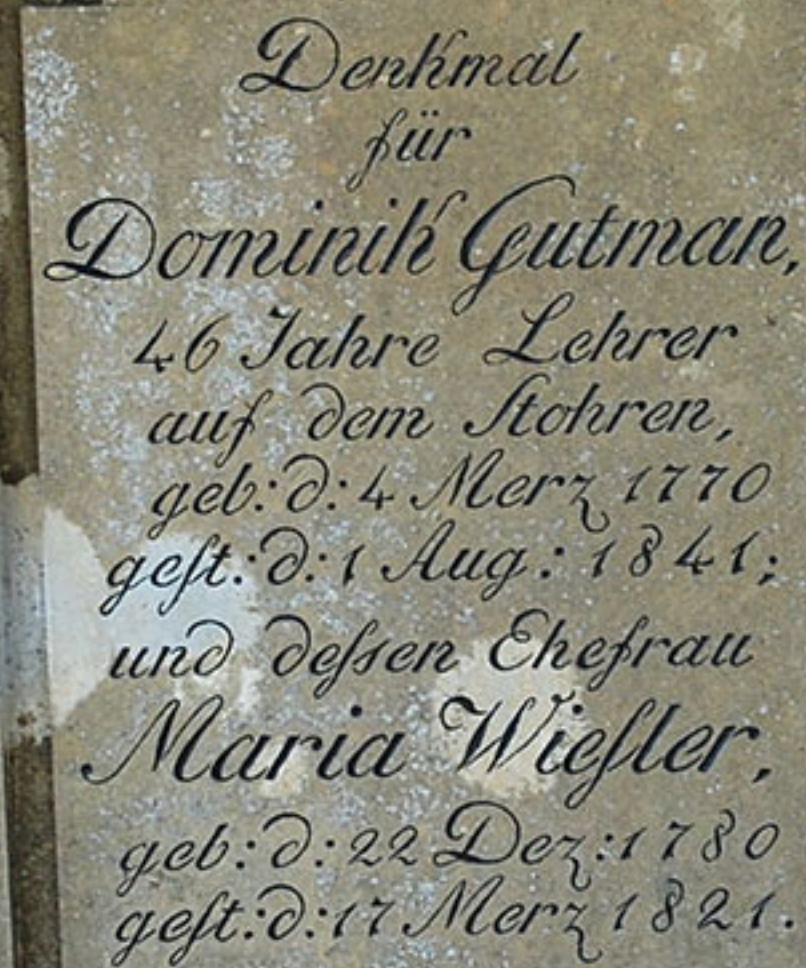 Denkmal
für
Dominik Gutman,
46 Jahre Lehrer
auf dem Stohren,
geb: d: 4 Merz 1770
geſt: d: 1 Aug: 1841;
und deſsen Ehefrau
Maria Wieſler,
geb: d: 22 Dez: 1780
geſt: d: 17 Merz 1821.